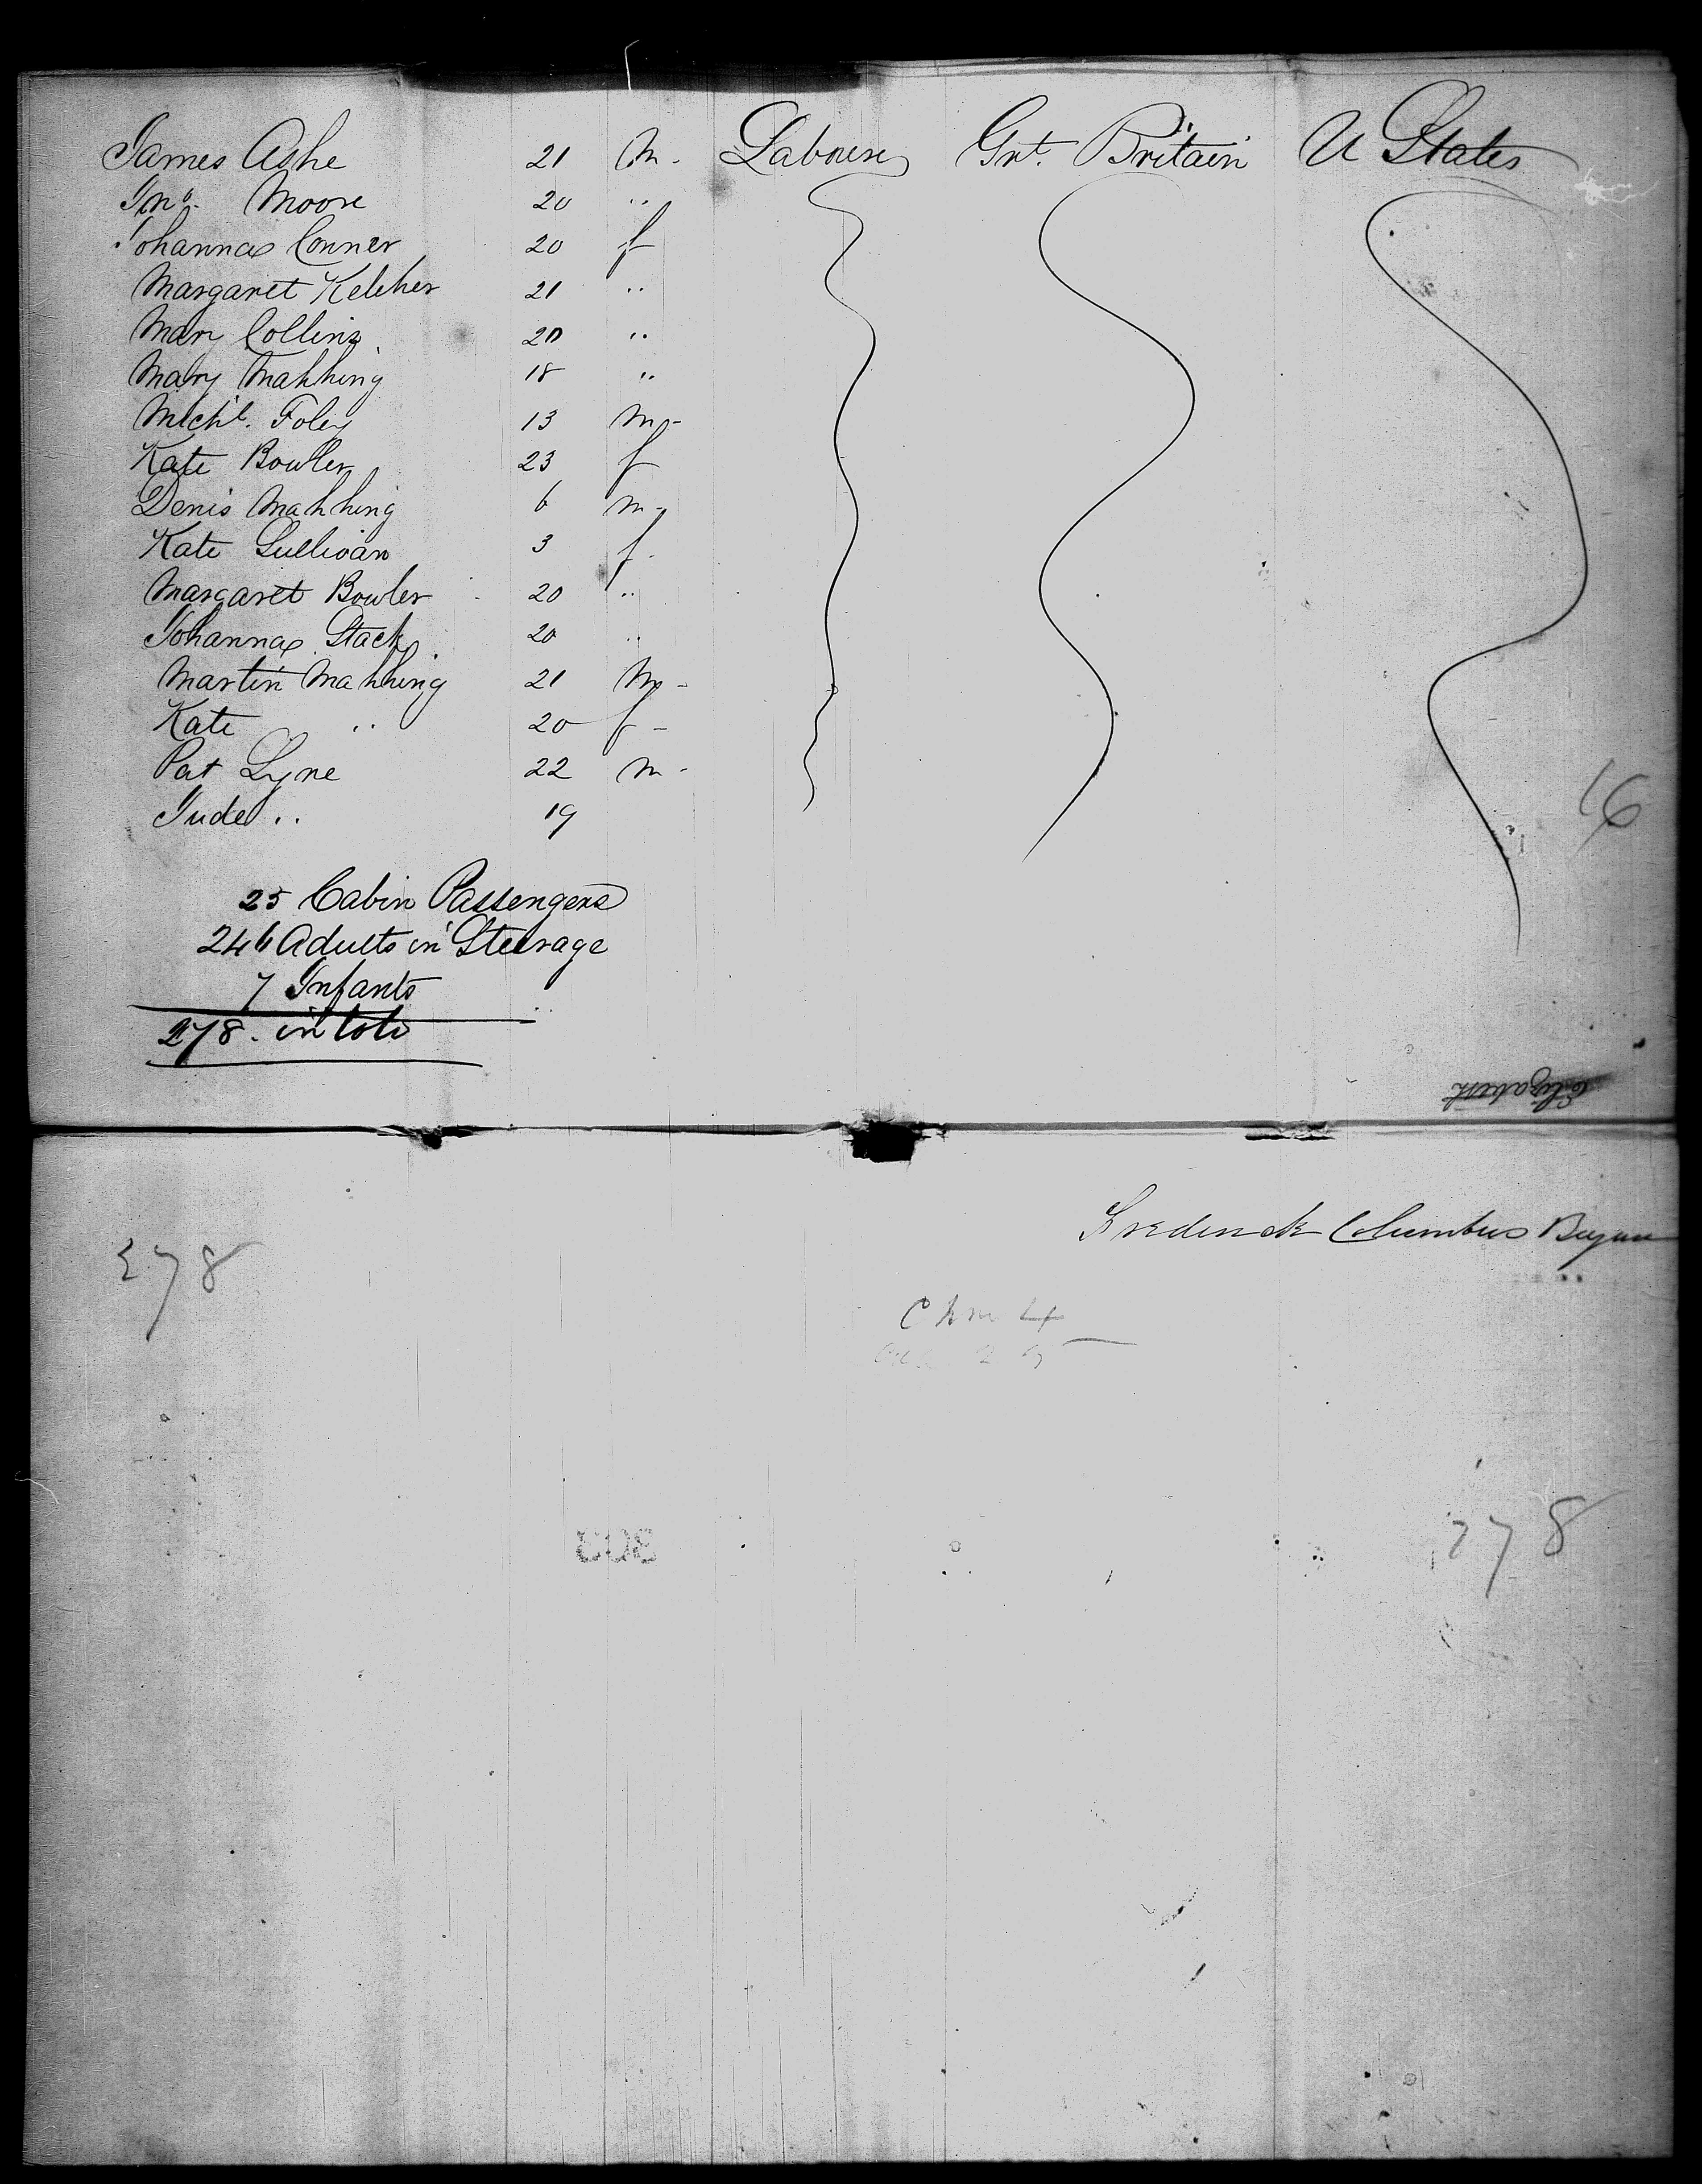 James Ashe 21 M. Labourer Grt. Britain U States
Jno. Moore 20 "
Johanna Conner 20 f
Margaret Kelcher 21 "
Mary Collins 20 "
Mary Mahhing 18 "
Michl. Foley 13 m-
Kate Bowler 23 f
Denis Mahhing 6 m-
Kate Sullivan 3 f.
Margaret Bowler 20 "
Johanna Stack 20 "
Martin Mahhing 21 M-
Kate " 20 f-
Pat Lyne 22 m-
Jude " 19
16
25 Cabin Passengers
246 Adults in Steerage
7 Infants
278. in toto
Elizabeth
Frederick Columbus
278
4
303
278